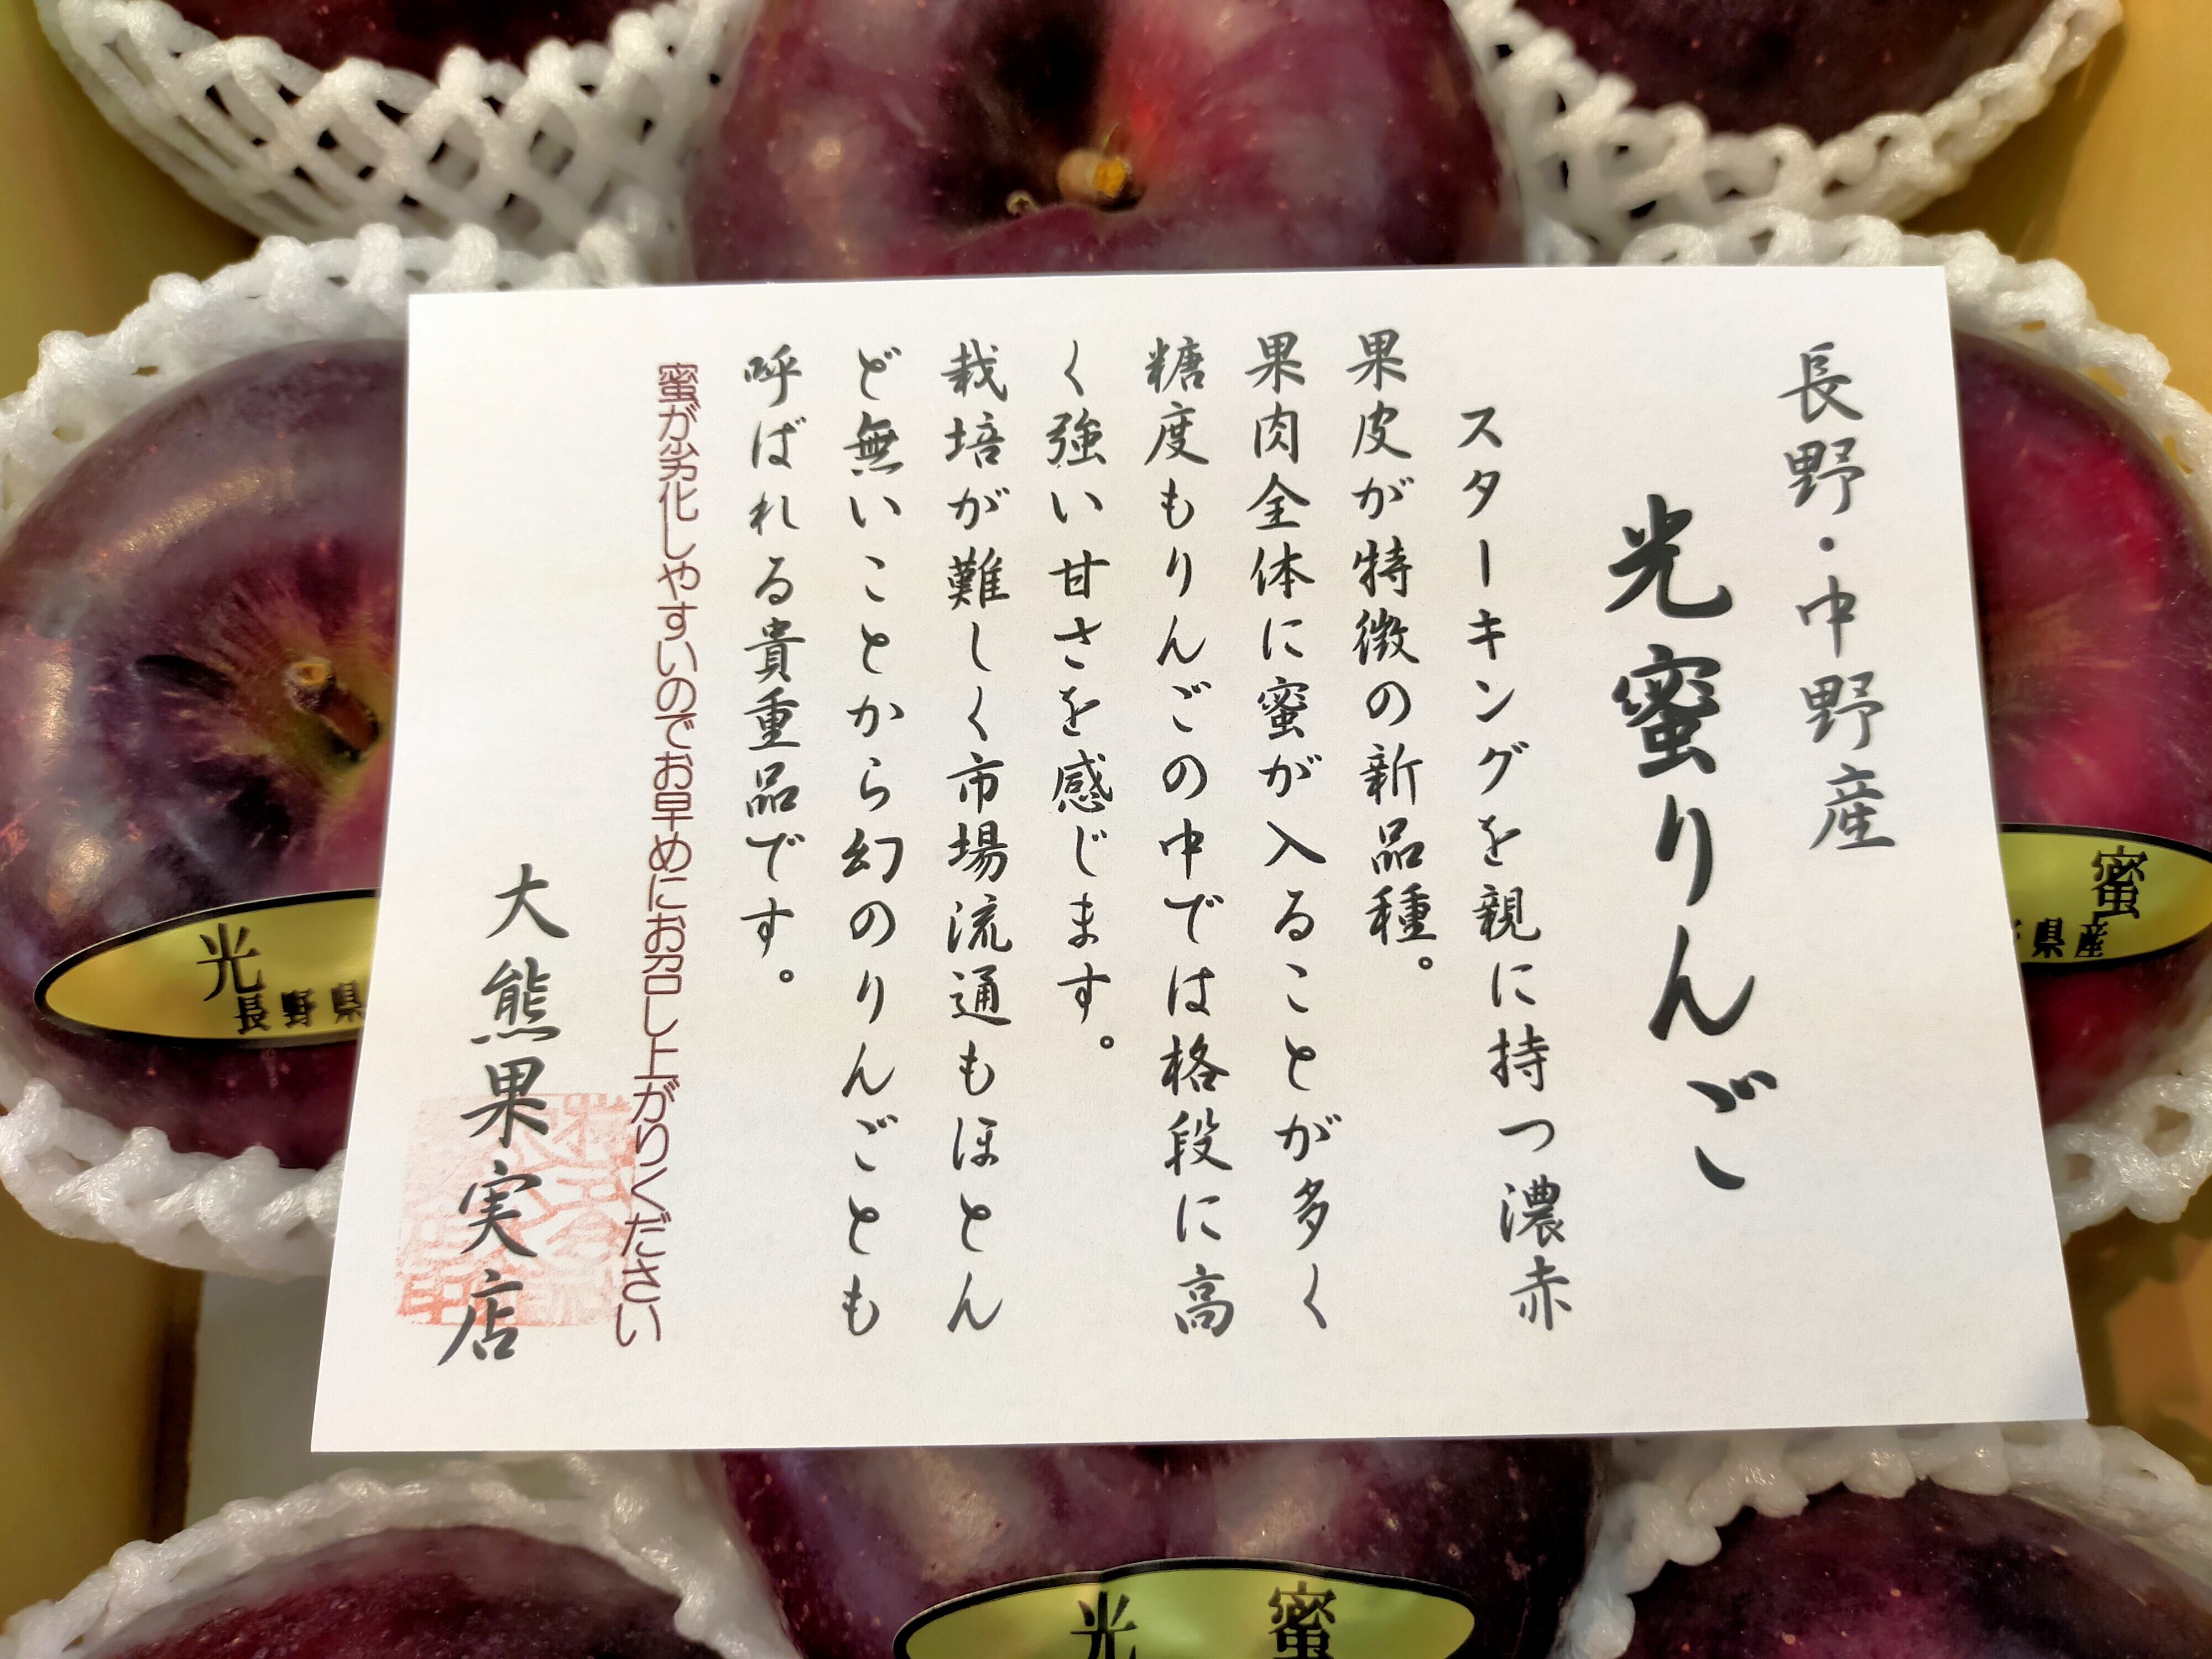 長野・中野産
光蜜りんご
スターキングを親に持つ濃赤
果皮が特徴の新品種。
果肉全体に蜜が入ることが多く
糖度もりんごの中では格段に高
く強い甘さを感じます。
栽培が難しく市場流通もほとん
ど無いことから幻のりんごとも
呼ばれる貴重品です。
蜜が劣化しやすいのでお早めにお召し上がりください
大熊果実店
蜜
県産
光
長野県
光 蜜